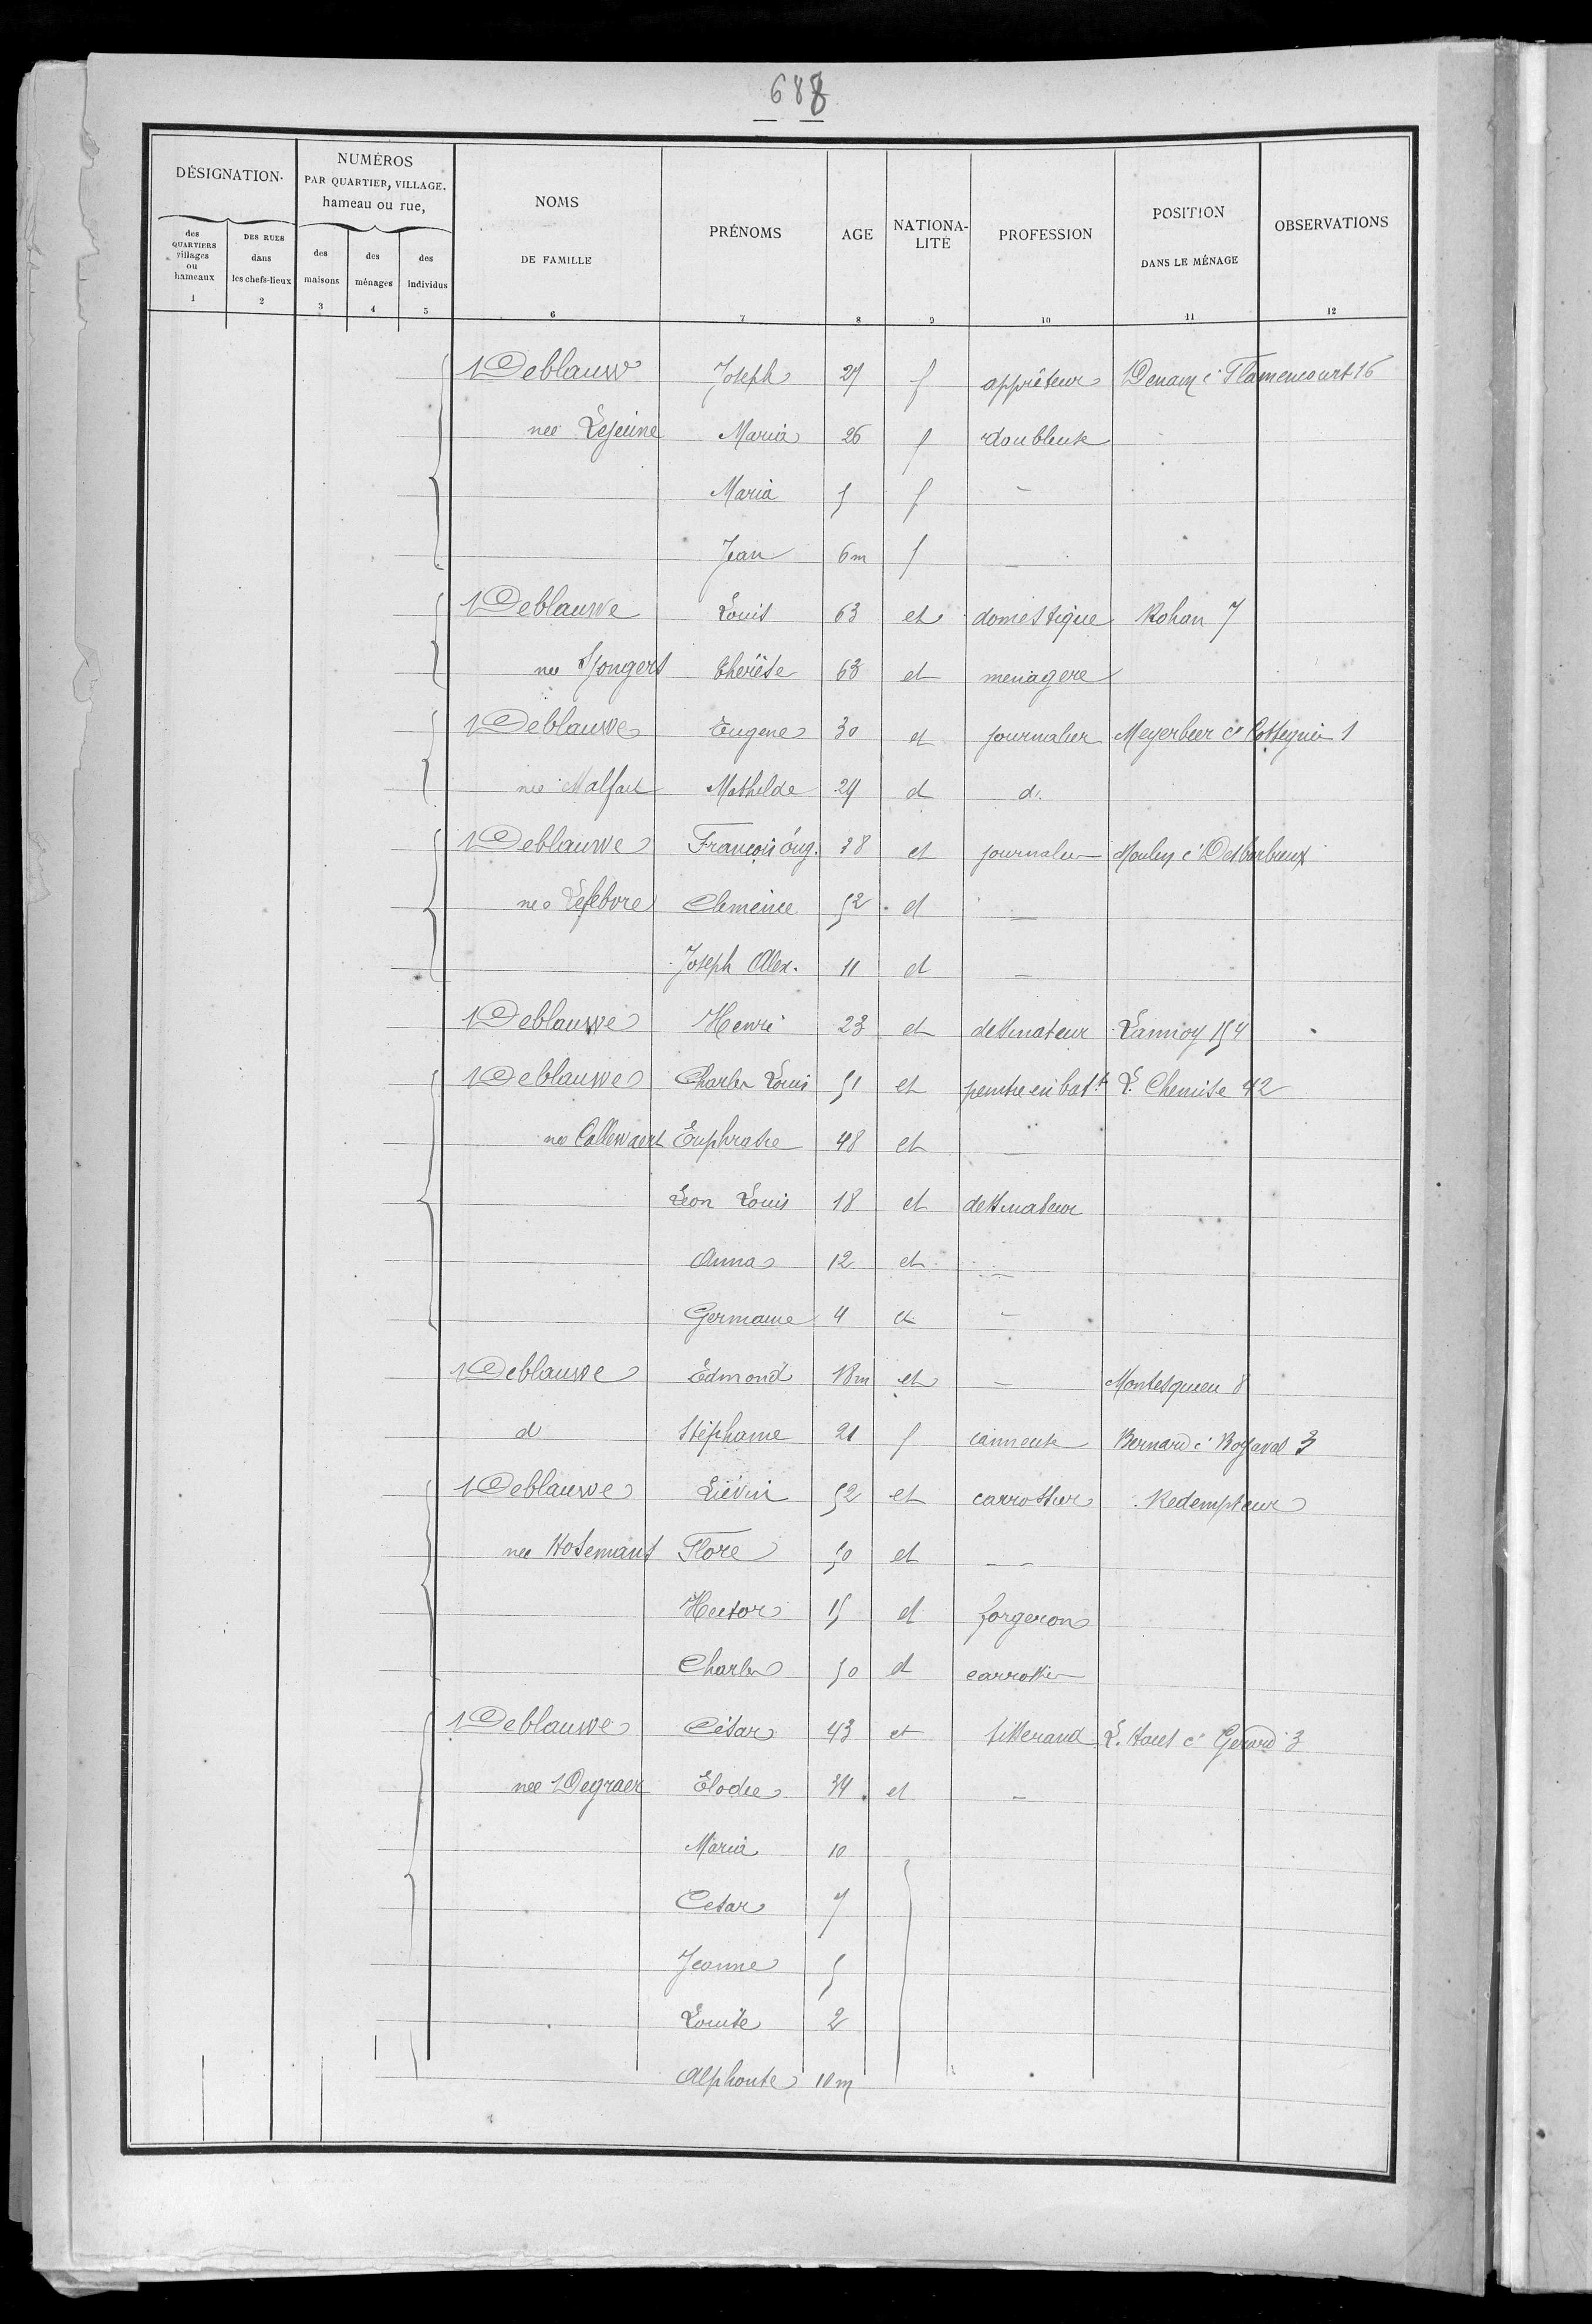 688
DÉSIGNATION.
NUMÉROS
PAR QUARTIER, VILLAGE,
hameau ou rue,
NOMS
DE FAMILLE
PRÉNOMS
AGE
NATIONA-
LITÉ
PROFESSION
POSITION
DANS LE MÉNAGE
OBSERVATIONS
des
QUARTIERS
villages
ou
hameaux
DES RUES
dans
les chefs-lieux
des
maisons
des
ménages
des
individus
1 2 3 4 5 6 7 8 9 10 11 12
Deblauw Joseph 27 f apprêteur Denain c. Flamencourt 16
née Lejeune Maria 26 f doubleuse
Maria 5 f -
Jean 6m f -
Deblauwe Louis 63 et domestique Rohan 7
née Thérèse 63 et menagere
Deblauwe Eugene 30 et journalier Meyerbeer cr 1
née Malfait Mathilde 29 d d.
Deblauwe François Aug. 38 et journalier
née Lefebvre Clemence 52 et -
Joseph Alex. 11 et -
Deblauwe Henri 23 et dessinateur Lannoy 154
Deblauwe Charles Louis 51 et peintre en batt L. Chemise 42
née Callewaert Euphrasie 48 et -
Léon Louis 18 et dessinateur
Anna 12 et -
Germaine 4 et -
Deblauwe Edmond 18m et - Montesquieu 8
d Stéphanie 21 f canneuse Bernard c. 3
Deblauwe Liévin 52 et carrossier Redempteur
née Hosemans Flore 50 et -
Hector 15 et forgeron
Charles 50 et carrossier
Deblauwe César 43 et tisserand L. Haies cr Gerard 3
née Degraer Elodie 34 et -
Maria 10
Cesar 7
Jeanne 5
Louise 2
Alphonse 10m